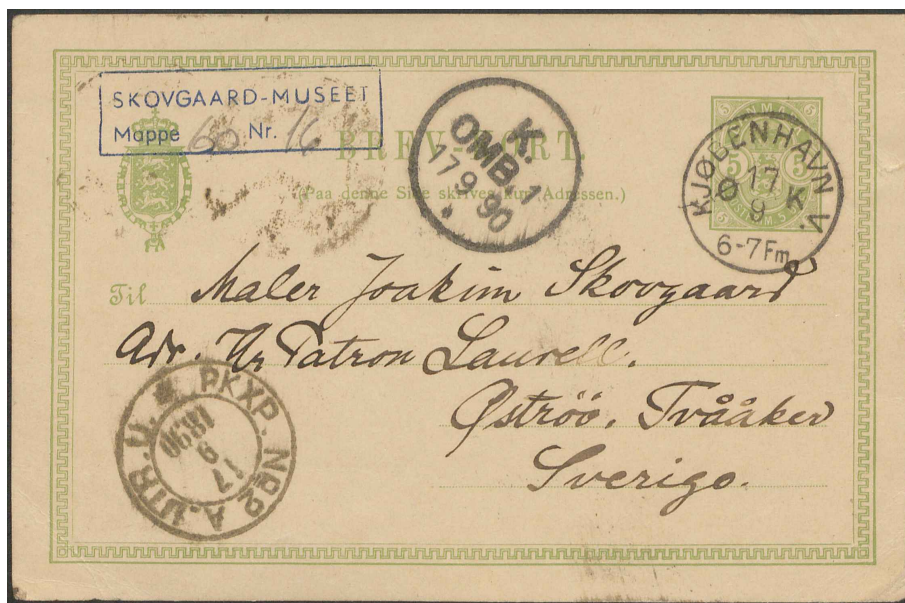 SKOVGAARD-MUSEET
Mappe 60 Nr. 16
BREV-KORT.
(Paa denne Side skrives kun Adressen.)
K.
OMB.1
17 9. 90
DANMARK
5 5
KJØBENHAVN V.
Ø 17 K
9
6-7 Fm
Til Maler Joakim Skovgaard
Adr. Hr Patron Laurell.
Øströö. Tvååker
Sverige.
PKXP. NR2 A. UTR. U.
17
9
1890